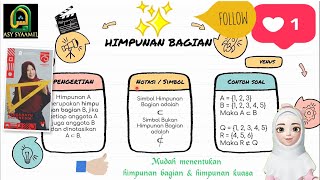 ASY SYAAMIL
FOLLOW
1
HIMPUNAN BAGIAN
VENUS
PENGERTIAN
Himpunan A
merupakan himpu
an bagian B, jika
setiap anggota A
juga anggota B
dan dinotasikan
A ⊂ B.
NOTASI / SIMBOL
Simbol Himpunan
Bagian adalah
⊂
Simbol Bukan
Himpunan Bagian
adalah
⊄
CONTOH SOAL
A = {1, 2, 3}
B = {1, 2, 3, 4, 5}
Maka A ⊂ B
Q = {1, 2, 3, 4, 5}
R = {4, 5, 6}
Maka R ⊄ Q
Mudah menentukan
himpunan bagian & himpunan kuasa